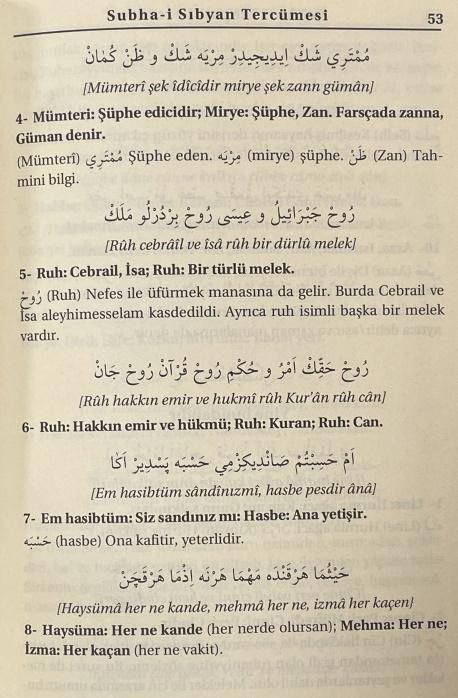 Subha-i Sıbyan Tercümesi 53
مُمْتَرِي شَكْ اِيدِيجِيدِرْ مِرْيَه شَكْ و ظَنْ كُمَانْ
[Mümterî şek îdîcîdir mirye şek zann gümân]
4- Mümteri: Şüphe edicidir; Mirye: Şüphe, Zan. Farsçada zanna,
Güman denir.
(Mümteri) مُمْتَرِي Şüphe eden. مِرْيَه (mirye) şüphe. ظَنْ (Zan) Tah-
mini bilgi.
رُوحْ جَبْرَائِيلُ و عِيسَى رُوحْ بِرْدُرْلُو مَلَكْ
[Rûh cebrâîl ve îsâ rûh bir dürlû melek]
5- Ruh: Cebrail, İsa; Ruh: Bir türlü melek.
رُوحْ (Ruh) Nefes ile üfürmek manasına da gelir. Burda Cebrail ve
İsa aleyhimesselam kasdedildi. Ayrıca ruh isimli başka bir melek
vardır.
رُوحْ حَقِّكْ اَمْرُ و حُكْمِ رُوحْ قُرْآنْ رُوحْ جَانْ
[Rûh hakkın emir ve hukmî rûh Kur'ân rûh cân]
6- Ruh: Hakkın emir ve hükmü; Ruh: Kuran; Ruh: Can.
اَمْ حَسِبْتُمْ صَانْدِيكِزْمِي حَسْبَه پَسْدِيرْ اَكَا
[Em hasibtüm sândînızmî, hasbe pesdir ânâ]
7- Em hasibtüm: Siz sandınız mı: Hasbe: Ana yetişir.
حَسْبَه (hasbe) Ona kafitir, yeterlidir.
حَيْثُمَا هَرْقَنْدَه مَهْمَا هَرْنَه اِذْمَا هَرْقَچَنْ
[Haysümâ her ne kande, mehmâ her ne, izmâ her kaçen]
8- Haysüma: Her ne kande (her nerde olursan); Mehma: Her ne;
İzma: Her kaçan (her ne vakit).